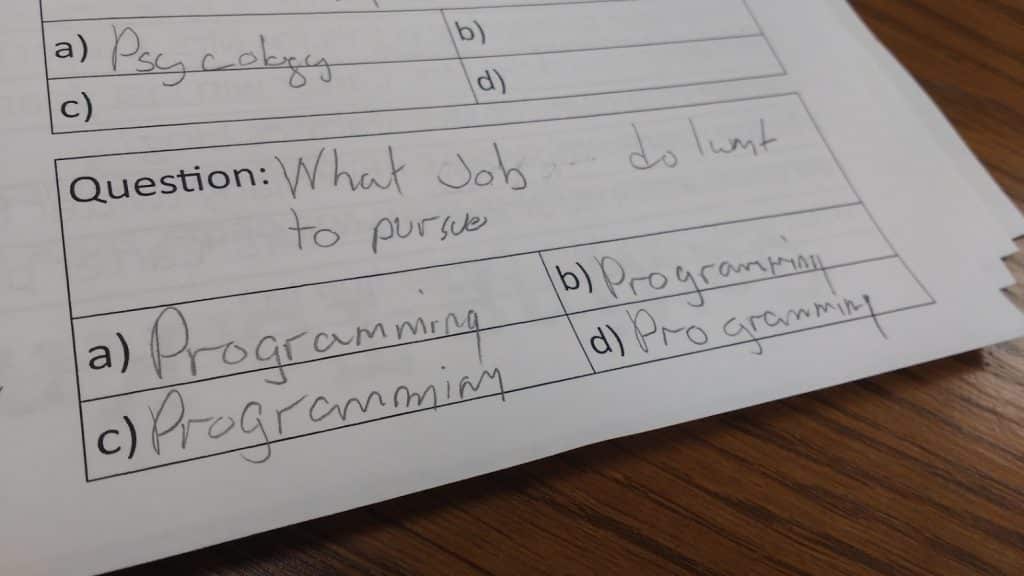 a) Psycology b)
c) d)
Question: What Job do I want
to pursue
a) Programming b) Programming
c) Programming d) Programming